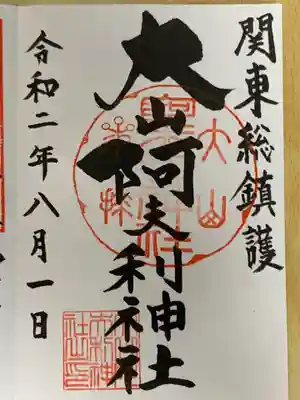 関東総鎮護
大山阿夫利神社
令和二年八月一日